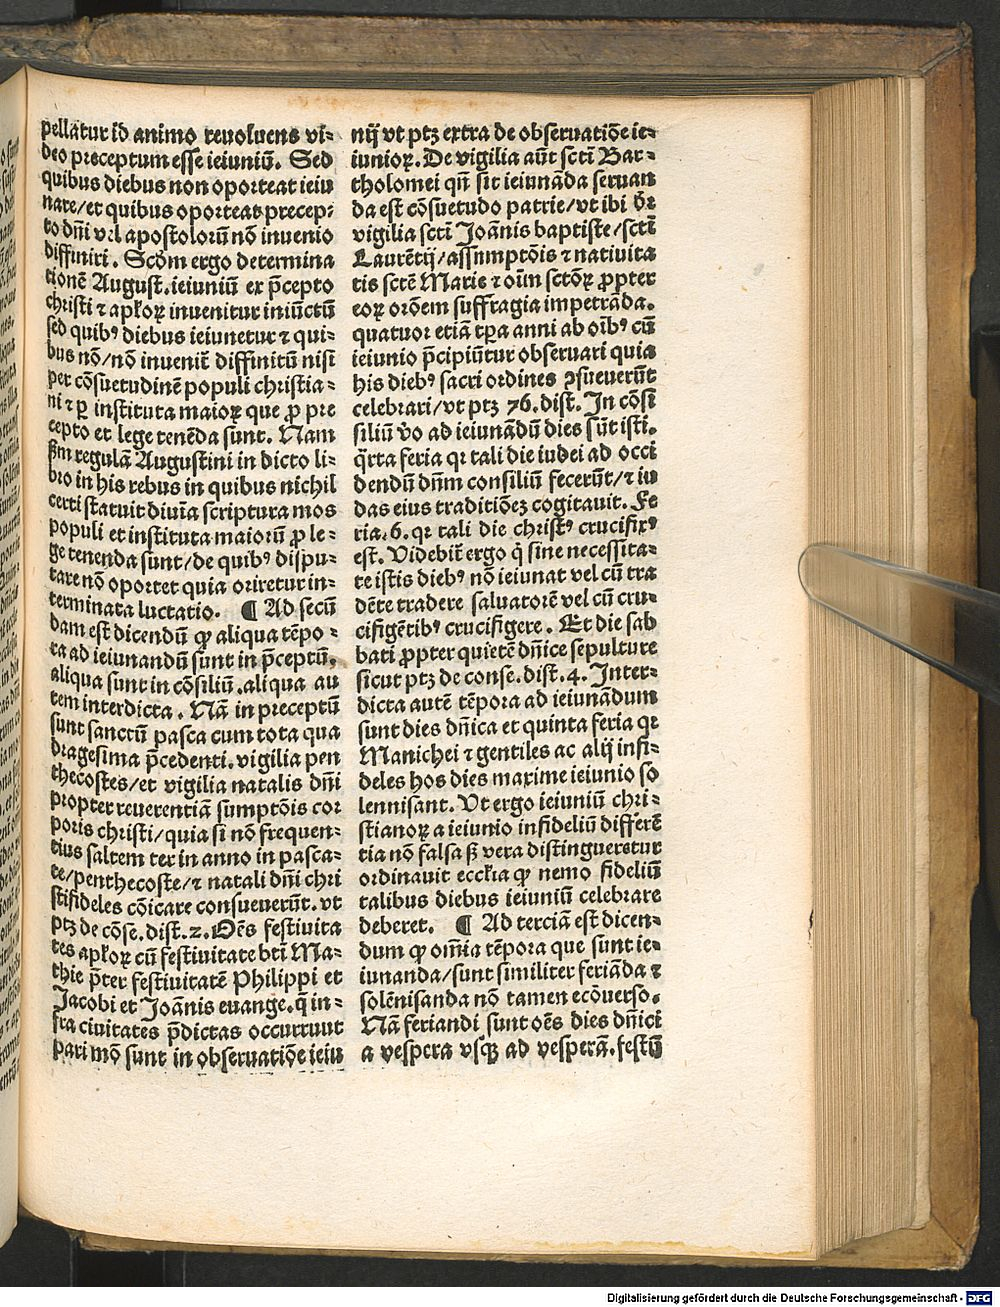 pellatur id animo reuoluens vi⸗
deo preceptum esse ieiuniū. Sed
quibus diebus non oporteat ieiu
nare/et quibus oporteat precep⸗
to dn̄i vel apostolorū nō invenio
diffiniri. Scdm ergo determina
tionē August. ieiuniū ex p̄cepto
christi ⁊ aplꝝ invenitur iniūctū
sed quibꝰ diebus ieiunetur ⁊ qui⸗
bus nō/nō invenit̄ diffinitū nisi
per cōsuetudinē populi christia⸗
ni ⁊ ꝑ instituta maioꝝ que ꝓ pre
cepto et lege tenēda sunt. Nam
ẜm regulā Augustini in dicto li⸗
bro in his rebus in quibus nichil
certi statuit diuīa scriptura mos
populi et instituta maiorū ꝓ le⸗
ge tenenda sunt/de quibꝰ dispu⸗
tare nō oportet quia oriretur in⸗
terminata luctatio. ¶ Ad secū
dam est dicendū ꝙ aliqua tēpo⸗
ra ad ieiunandū sunt in p̄ceptū.
aliqua sunt in cōsiliū.aliqua au
tem interdicta. Nā in preceptū
sunt sanctū pasca cum tota qua
dragesima p̄cedenti. vigilia pen
thecostes/et vigilia natalis dn̄i
propter reuerentiā sumptōis cor
poris christi/quia si nō frequen⸗
tius saltem ter in anno in pasca⸗
te/penthecoste/⁊ natali dn̄i chri
stifideles cōicare consueuerūt. vt
ptꝫ de cōse. dist. 2. Oēs festiuita
tes aplꝝ cū festiuitate bt̄i Ma⸗
thie p̄ter festiuitatē Philippi et
Jacobi et Joānis euange. q̄ in⸗
fra ciuitates p̄dictas occurruut
pari mō sunt in obseruatiōe ieiu
nij vt ptꝫ extra de obseruatiōe ie⸗
iunioꝝ. De vigilia aūt sctī Bar⸗
tholomei qn̄ sit ieiunāda seruan
da est cōsuetudo patrie/vt ibi dr̄
vigilia sctī Joānis baptiste/sctī
Laurētij/assnmptōis ⁊ natiuita
tis sctē Marie ⁊ oīm sctōꝝ ꝓpter
eoꝝ orōem suffragia impetrāda.
quatuor etiā tꝑa anni ab oībꝰ cū
ieiunio p̄cipiūtur obseruari quia
his diebꝰ sacri ordines ꝯsueuerūt
celebrari/vt ptꝫ 76. dist. In cōsi
siliū v̄o ad ieiunādū dies sūt isti.
q̄rta feria qꝛ tali die iudei ad occi
dendū dn̄m consiliū fecerūt/⁊ iu
das eius traditiōeꝫ cogitauit. Fe
ria. 6. qꝛ tali die christꝰ crucifixꝰ
est. Videbit̄ ergo q̄ sine necessita⸗
te istis diebꝰ nō ieiunat vel cū tra
dēte tradere saluatorē vel cū cru⸗
cifigētibꝰ crucifigere. Et die sab
bati ꝓpter quietē dn̄ice sepulture
sicut ptꝫ de conse. dist. 4. Inter⸗
dicta autē tēpora ad ieiunādum
sunt dies dn̄ica et quinta feria qꝛ
Manichei ⁊ gentiles ac alij infi⸗
deles hos dies maxime ieiunio so
lennisant. Vt ergo ieiuniū chri⸗
stianoꝝ a ieiunio infideliū differē
tia nō falsa sꝫ vera distingueretur
ordinauit eccɫia ꝙ nemo fideliū
talibus diebus ieiuniū celebrare
deberet. ¶ Ad terciā est dicen⸗
dum ꝙ om̄ia tēpora que sunt ie⸗
iunanda/sunt similiter feriāda ⁊
solēnisanda nō tamen ecōuerso.
Nā feriandi sunt oēs dies dn̄ici
a vespera vsqꝫ ad vesperā.festū
Digitalisierung gefördert durch die Deutsche Forschungsgemeinschaft - DFG